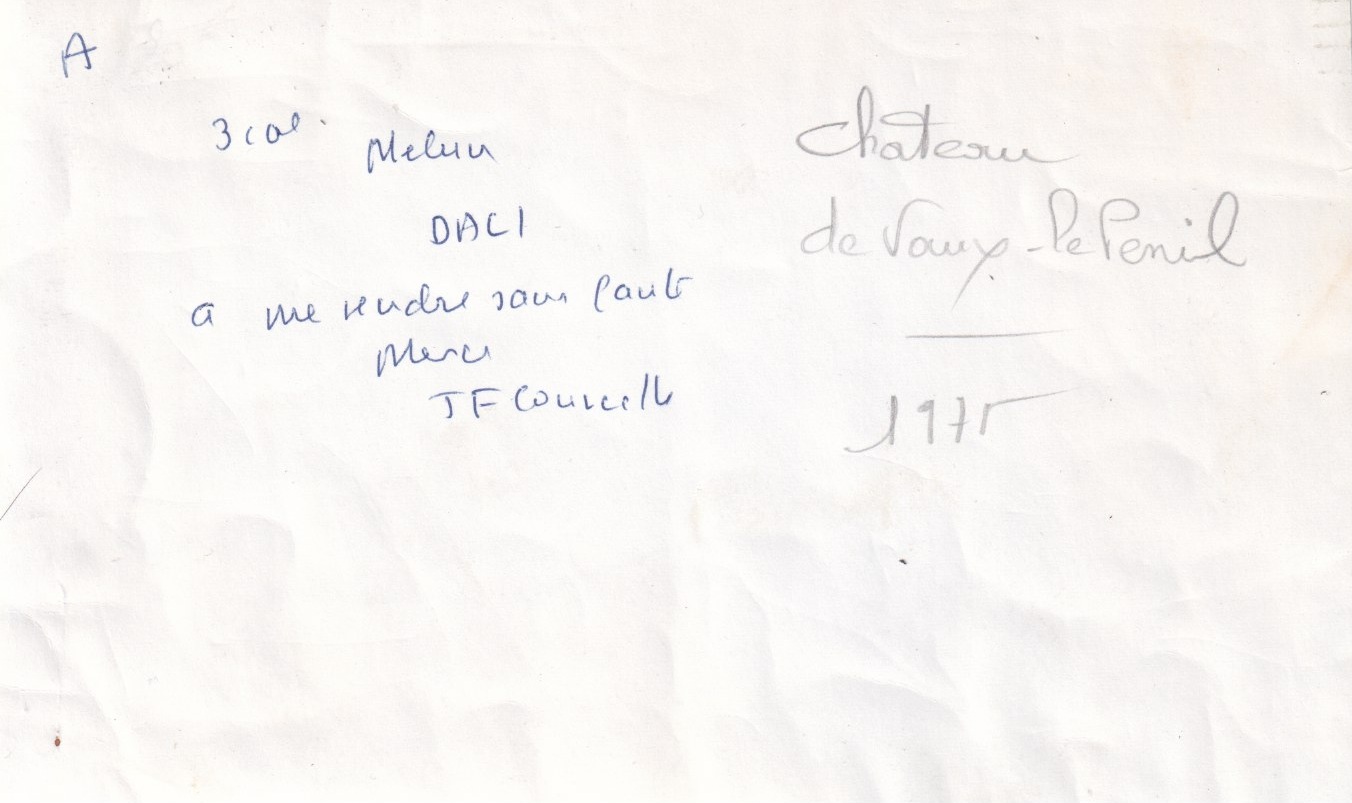 A
3 col.
Melun
DALI
a me rendre sans faute
Merci
JF Courcelle
Chateau
de Vaux-le Penil
1975